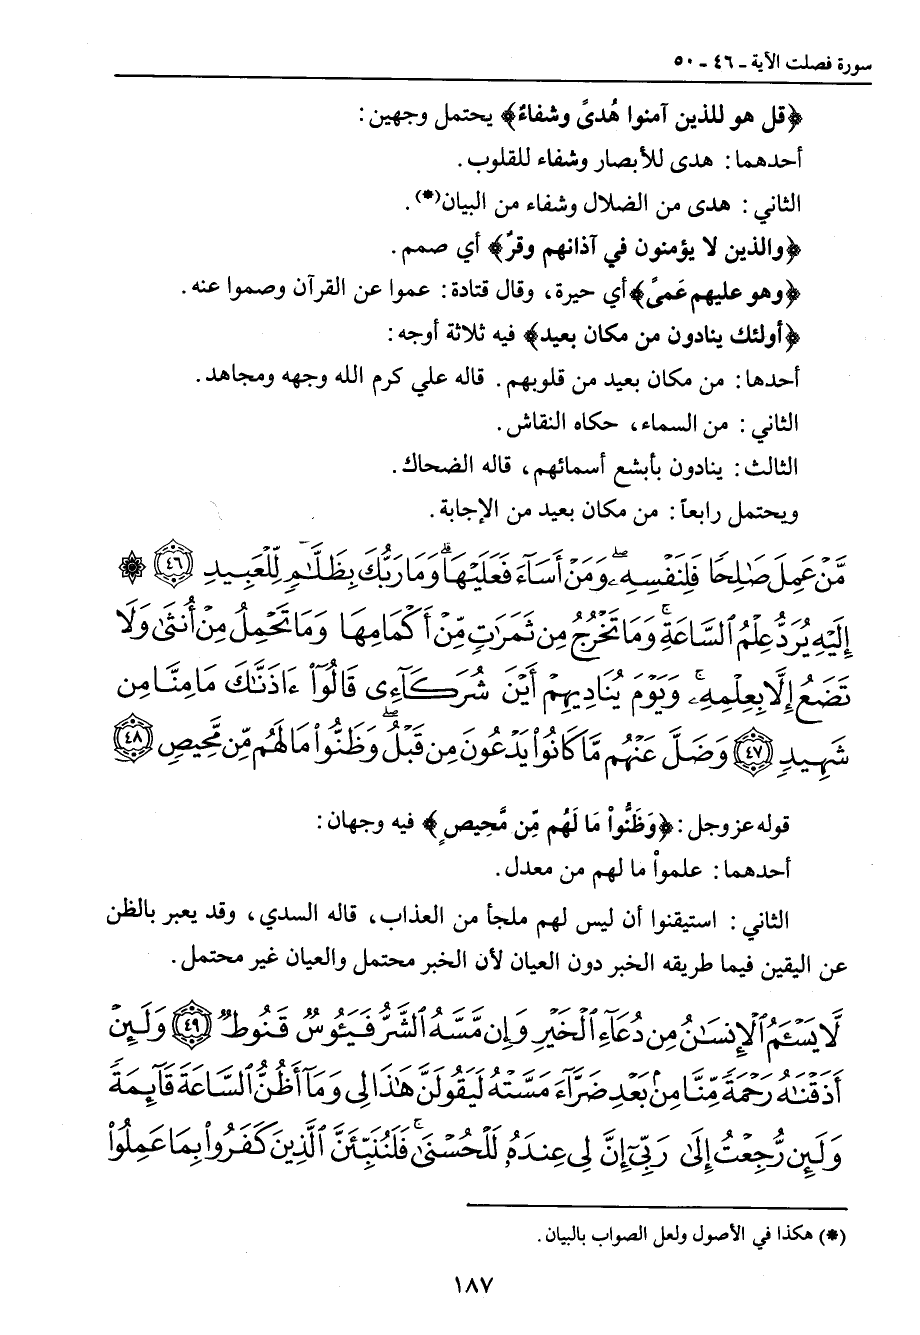 سورة فصلت الآية ـ ٤٦ ـ ٥٠
﴿قل هو للذين آمنوا هُدىً وشفاءً﴾ يحتمل وجهين:
أحدهما: هدى للأبصار وشفاء للقلوب.
الثاني: هدى من الضلال وشفاء من البيان(*).
﴿والذين لا يؤمنون في آذانهم وقرٌ﴾ أي صمم.
﴿وهو عليهم عَمىً﴾ أي حيرة، وقال قتادة: عموا عن القرآن وصموا عنه.
﴿أولئك ينادون من مكان بعيد﴾ فيه ثلاثة أوجه:
أحدها: من مكان بعيد من قلوبهم. قاله علي كرم الله وجهه ومجاهد.
الثاني: من السماء، حكاه النقاش.
الثالث: ينادون بأبشع أسمائهم، قاله الضحاك.
ويحتمل رابعاً: من مكان بعيد من الإجابة.
مَّنْ عَمِلَ صَٰلِحًا فَلِنَفْسِهِۦ ۖ وَمَنْ أَسَآءَ فَعَلَيْهَا ۗ وَمَا رَبُّكَ بِظَلَّٰمٍ لِّلْعَبِيدِ ﴿٤٦﴾ ۞
إِلَيْهِ يُرَدُّ عِلْمُ ٱلسَّاعَةِ ۚ وَمَا تَخْرُجُ مِن ثَمَرَٰتٍ مِّنْ أَكْمَامِهَا وَمَا تَحْمِلُ مِنْ أُنثَىٰ وَلَا
تَضَعُ إِلَّا بِعِلْمِهِۦ ۚ وَيَوْمَ يُنَادِيهِمْ أَيْنَ شُرَكَآءِى قَالُوٓا۟ ءَاذَنَّٰكَ مَا مِنَّا مِن
شَهِيدٍ ﴿٤٧﴾ وَضَلَّ عَنْهُم مَّا كَانُوا۟ يَدْعُونَ مِن قَبْلُ ۖ وَظَنُّوا۟ مَا لَهُم مِّن مَّحِيصٍ ﴿٤٨﴾
قوله عز وجل: ﴿وَظَنُّواْ مَا لَهُم مِّن مَّحِيصٍ﴾ فيه وجهان:
أحدهما: علمواْ ما لهم من معدل.
الثاني: استيقنوا أن ليس لهم ملجأ من العذاب، قاله السدي، وقد يعبر بالظن
عن اليقين فيما طريقه الخبر دون العيان لأن الخبر محتمل والعيان غير محتمل.
لَّا يَسْـَٔمُ ٱلْإِنسَٰنُ مِن دُعَآءِ ٱلْخَيْرِ وَإِن مَّسَّهُ ٱلشَّرُّ فَيَـُٔوسٌ قَنُوطٌ ﴿٤٩﴾ وَلَئِنْ
أَذَقْنَٰهُ رَحْمَةً مِّنَّا مِنۢ بَعْدِ ضَرَّآءَ مَسَّتْهُ لَيَقُولَنَّ هَٰذَا لِى وَمَآ أَظُنُّ ٱلسَّاعَةَ قَآئِمَةً
وَلَئِن رُّجِعْتُ إِلَىٰ رَبِّىٓ إِنَّ لِى عِندَهُۥ لَلْحُسْنَىٰ ۚ فَلَنُنَبِّئَنَّ ٱلَّذِينَ كَفَرُوا۟ بِمَا عَمِلُوا۟
(*) هكذا في الأصول ولعل الصواب بالبيان.
١٨٧